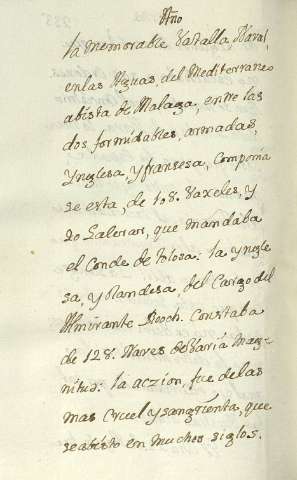 Año
la memorable Vatalla Naval,
en las Aguas, del Mediterraneo
abista de Malaga, entre las
dos formidables, armadas,
Ynglesa, y fransesa, componia
se esta, de 108. Vaxeles, y
20 Galeras, que mandaba
el Conde de tolosa: la yngle
sa, y olandesa, del Cargo del
Almirante Rooch. Constaba
de 128. Naves de Varia Mag-
nitud: la aczion, fue de las
mas cruel y sangrienta, que
se abisto en muchos siglos.